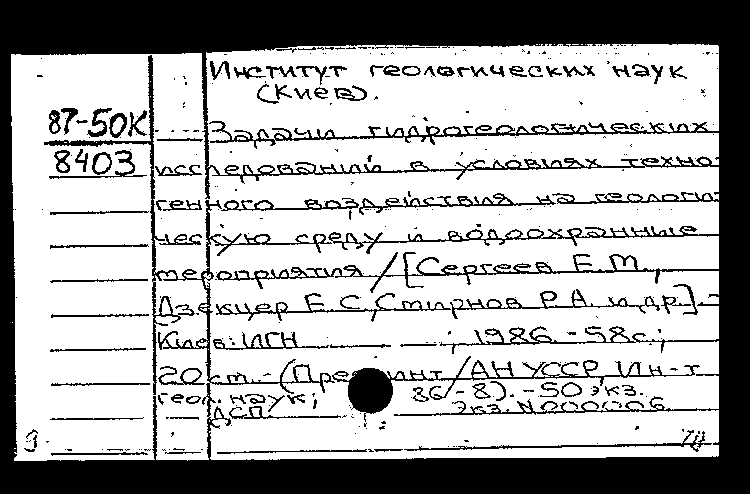 Институт геологических наук
(Киев).
87-50К
8403
Задачи гидрогеологических
исследований в условиях техно-
генного воздействия на геологи-
ческую среду и водоохранные
мероприятия / [Сергеев Е.М.,
Дзекцер Е.С., Смирнов Р.А. и др.]. -
Киев: ИГН ; 1986. - 58с.;
20 см. - (Препринт / АН УССР, Ин-т
геол. наук; 86-8). - 50 экз.
ДСП. Экз. N000006